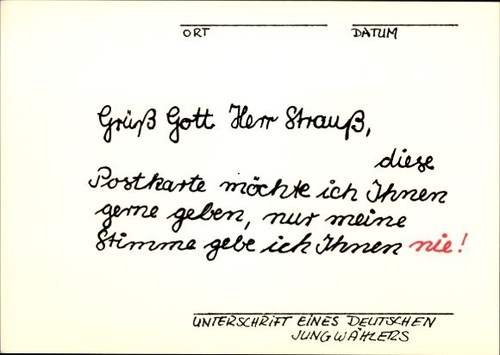 ORT DATUM
Grüß Gott Herr Strauß,
diese
Postkarte möchte ich Ihnen
gerne geben, nur meine
Stimme gebe ich Ihnen nie!
UNTERSCHRIFT EINES DEUTSCHEN
JUNGWÄHLERS